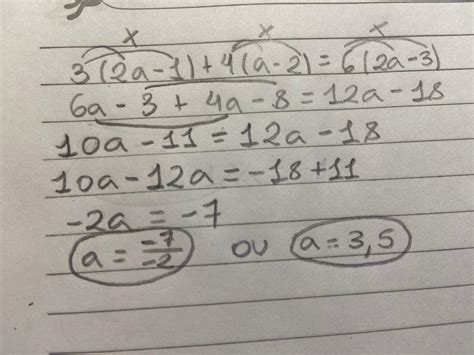 x x x
3(2a-1)+4(a-2)=6(2a-3)
6a-3+4a-8=12a-18
10a-11=12a-18
10a-12a=-18+11
-2a=-7
a=-7/-2 ou a=3,5